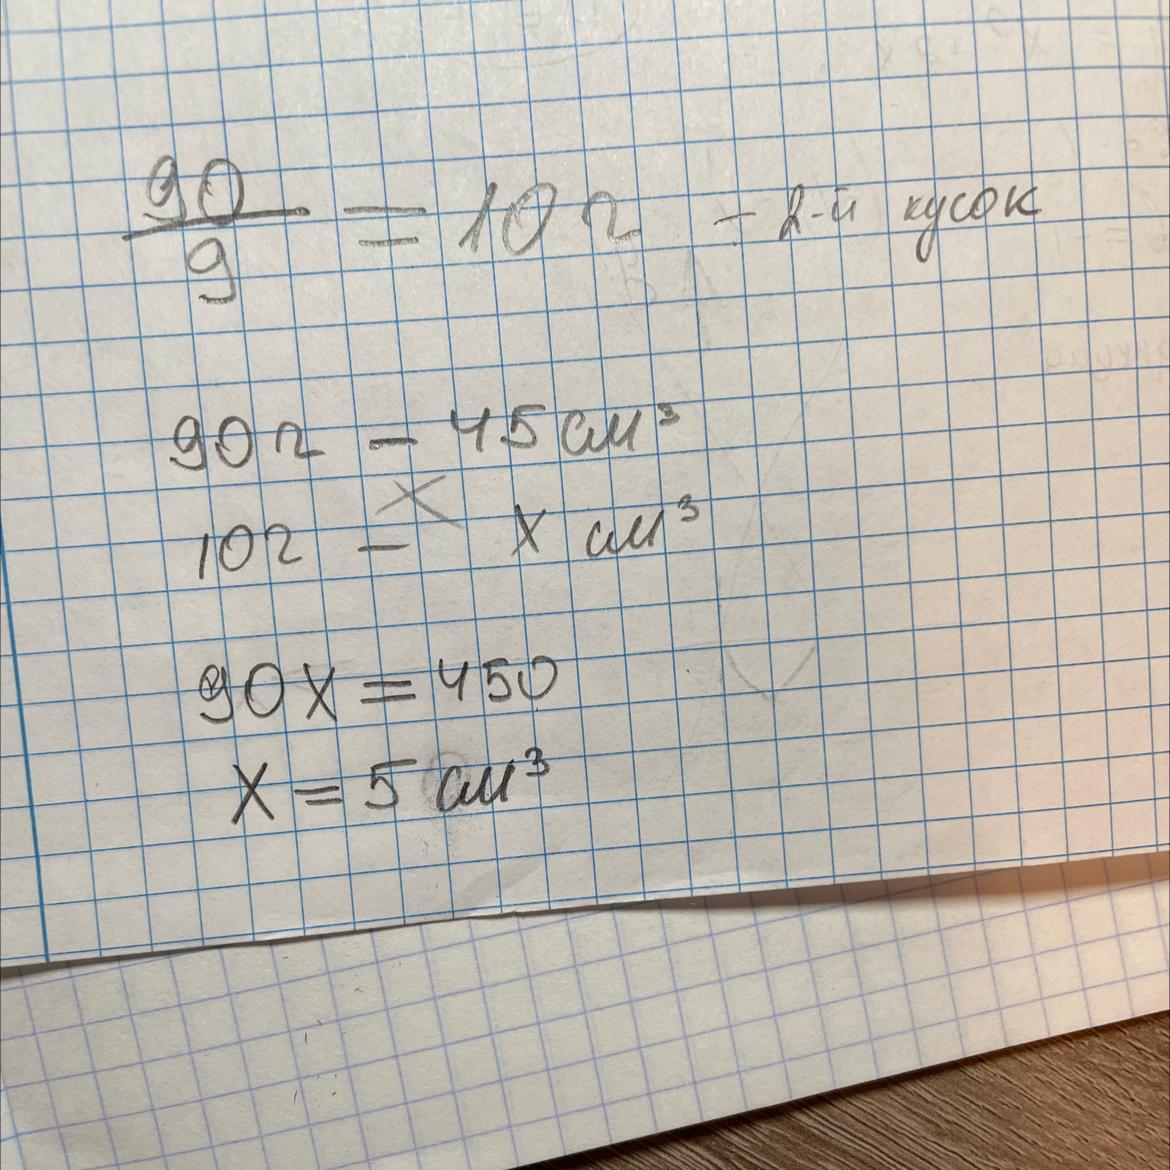 90/9 = 10 г - 2-й кусок
90 г - 45 см³
10 г - x см³
90x = 450
x = 5 см³